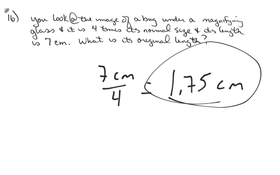 #
16) you look @ the image of a bug under a magnifying
glass & it is 4 times its normal size & its length
is 7cm. What is its original length?
7 cm
4
= 1.75 cm